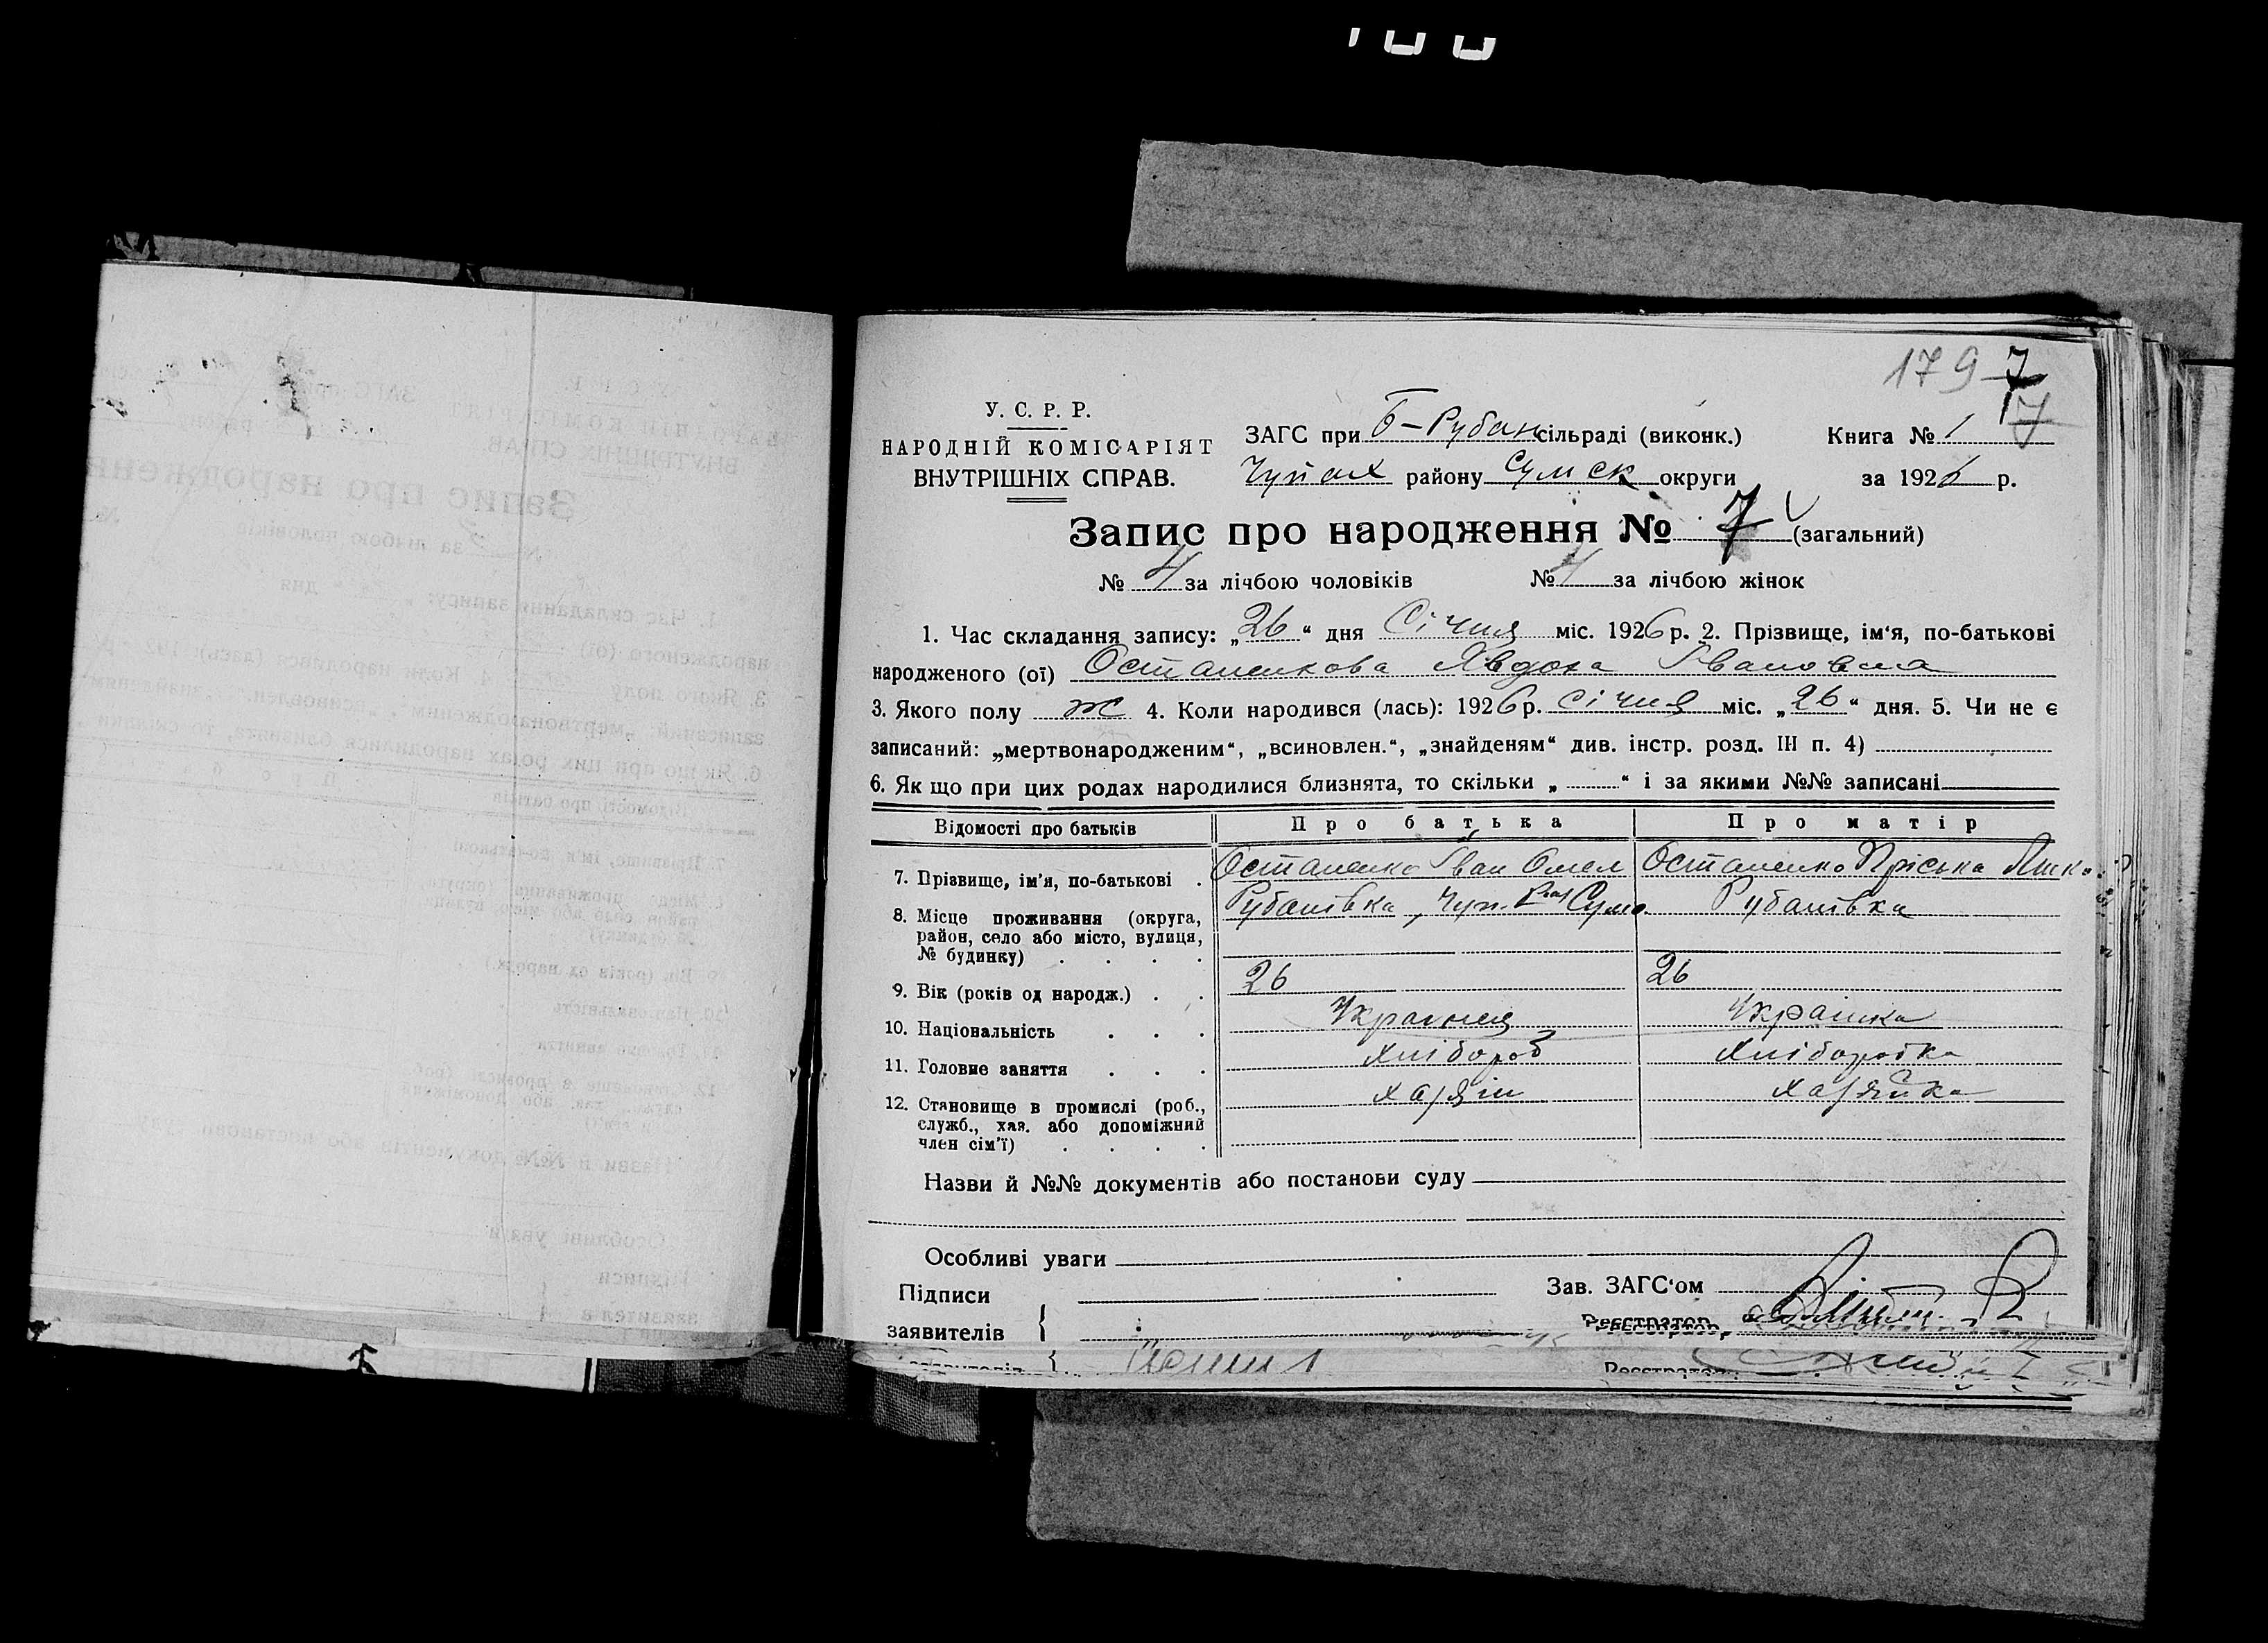 179 7
7
У. С. Р. Р.
НАРОДНІЙ КОМІСАРІЯТ
ВНУТРІШНІХ СПРАВ.
ЗАГС при Б-Рубан сільраді (виконк.) Книга № 1
Чупах району Сумск округи за 1926 р.
Запис про народження № 7 (загальний)
№ 4 за лічбою чоловіків № за лічбою жінок
1. Час складання запису: „26“ дня Січня міс. 1926 р. 2. Прізвище, ім‘я, по-батькові
народженого (ої) Остапенкова Явдоха Івановна
3. Якого полу ж 4. Коли народився (лась): 1926 р. січня міс. „26“ дня. 5. Чи не є
записаний: „мертвонародженим“, „всиновлен.“, „знайденям“ див. інстр. розд. III п. 4)
6. Як що при цих родах народилися близнята, то скільки „ “ і за якими №№ записані
Відомості про батьків Про батька Про матір
7. Прізвище, ім’я, по-батькові Остапенко Іван Омел Остапенко Пріська
8. Місце проживання (округа, Рубанівка, Чуп. Сумс. Рубанівка
район, село або місто, вулиця,
№ будинку)
9. Вік (років од народж.) 26 26
10. Національність Украинец Украинка
11. Головне заняття Хлібороб Хліборобка
12. Становище в промислі (роб., хазяін хазяйка
служб., хаз. або допоміжний
член сім’ї)
Назви й №№ документів або постанови суду
Особливі уваги
Підписи Зав. ЗАГС‘ом
заявителів { Реєстратор
Реєстратор